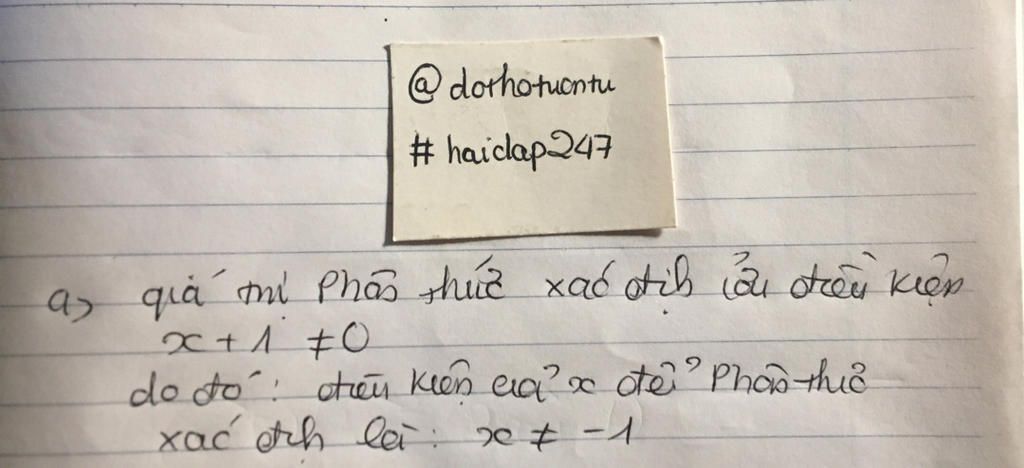 @dorhotuontu
# haidap247
a) giá trị Phân thức xác định với điều kiện
x + 1 ≠ 0
do đó: điều kiện của x để Phân thức
xác định là: x ≠ -1